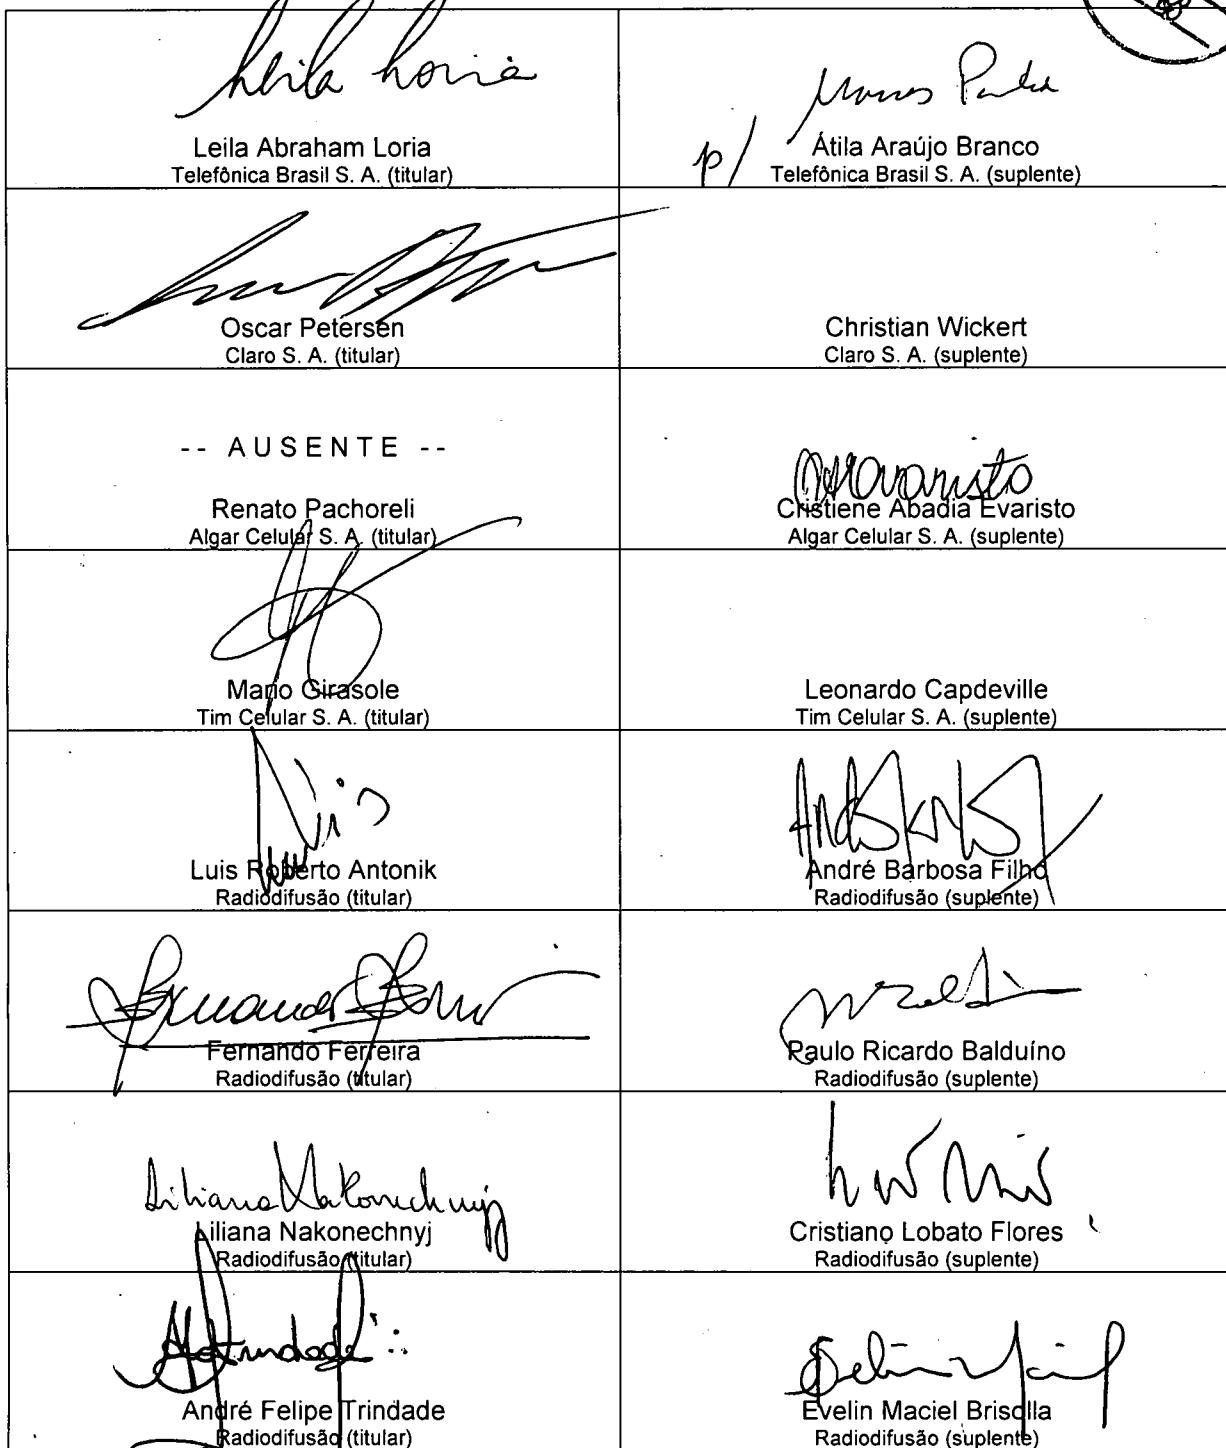 Leila Loria
Leila Abraham Loria
Telefônica Brasil S. A. (titular)
p/ Átila Araújo Branco
Telefônica Brasil S. A. (suplente)
Oscar Petersen
Claro S. A. (titular)
Christian Wickert
Claro S. A. (suplente)
-- AUSENTE --
Renato Pachoreli
Algar Celular S. A. (titular)
Cristiene Abadia Evaristo
Algar Celular S. A. (suplente)
Mario Girasole
Tim Celular S. A. (titular)
Leonardo Capdeville
Tim Celular S. A. (suplente)
Luis Roberto Antonik
Radiodifusão (titular)
André Barbosa Filho
Radiodifusão (suplente)
Fernando Ferreira
Radiodifusão (titular)
Paulo Ricardo Balduíno
Radiodifusão (suplente)
Liliana Nakonechnyj
Liliana Nakonechnyj
Radiodifusão (titular)
Cristiano Lobato Flores
Radiodifusão (suplente)
André Felipe Trindade
Radiodifusão (titular)
Evelin Maciel Brisolla
Radiodifusão (suplente)